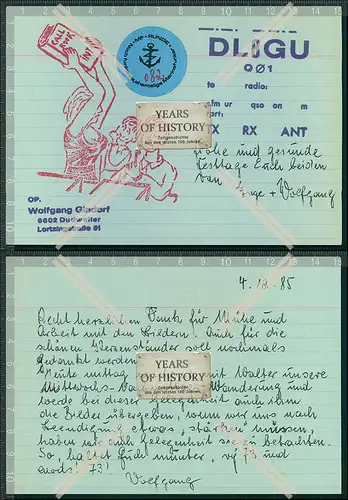 CALL
BOOK
DL8GU
QØ1
to radio:
fm ur qso on m
ort:
TX RX ANT
082
YEARS
OF HISTORY
Zeitgeschichte
aus den letzten 100 Jahren
Frohe und gesunde
Festtage Euch beiden
von Inge + Wolfgang
OP.
Wolfgang Gipdorf
6602 Dudweiler
Lortzingstraße 51
4.12.85
Recht herzlichen Dank für Mühe und
Arbeit mit den Bildern! Auch für die
schönen Kerzenständer soll nochmals
gedankt werden
Heute mittag mit Walter unsere
Mittwochs- Wanderung und
werde bei dieser Gelegenheit auch ihm
die Bilder übergeben, wenn wir uns nach
Beendigung etwas "stärken" müssen,
haben wir auch Gelegenheit sie zu betrachten.
So, haltet Euch munter, vy 73 und
73!
Wolfgang
YEARS
OF HISTORY
Zeitgeschichte
aus den letzten 100 Jahren